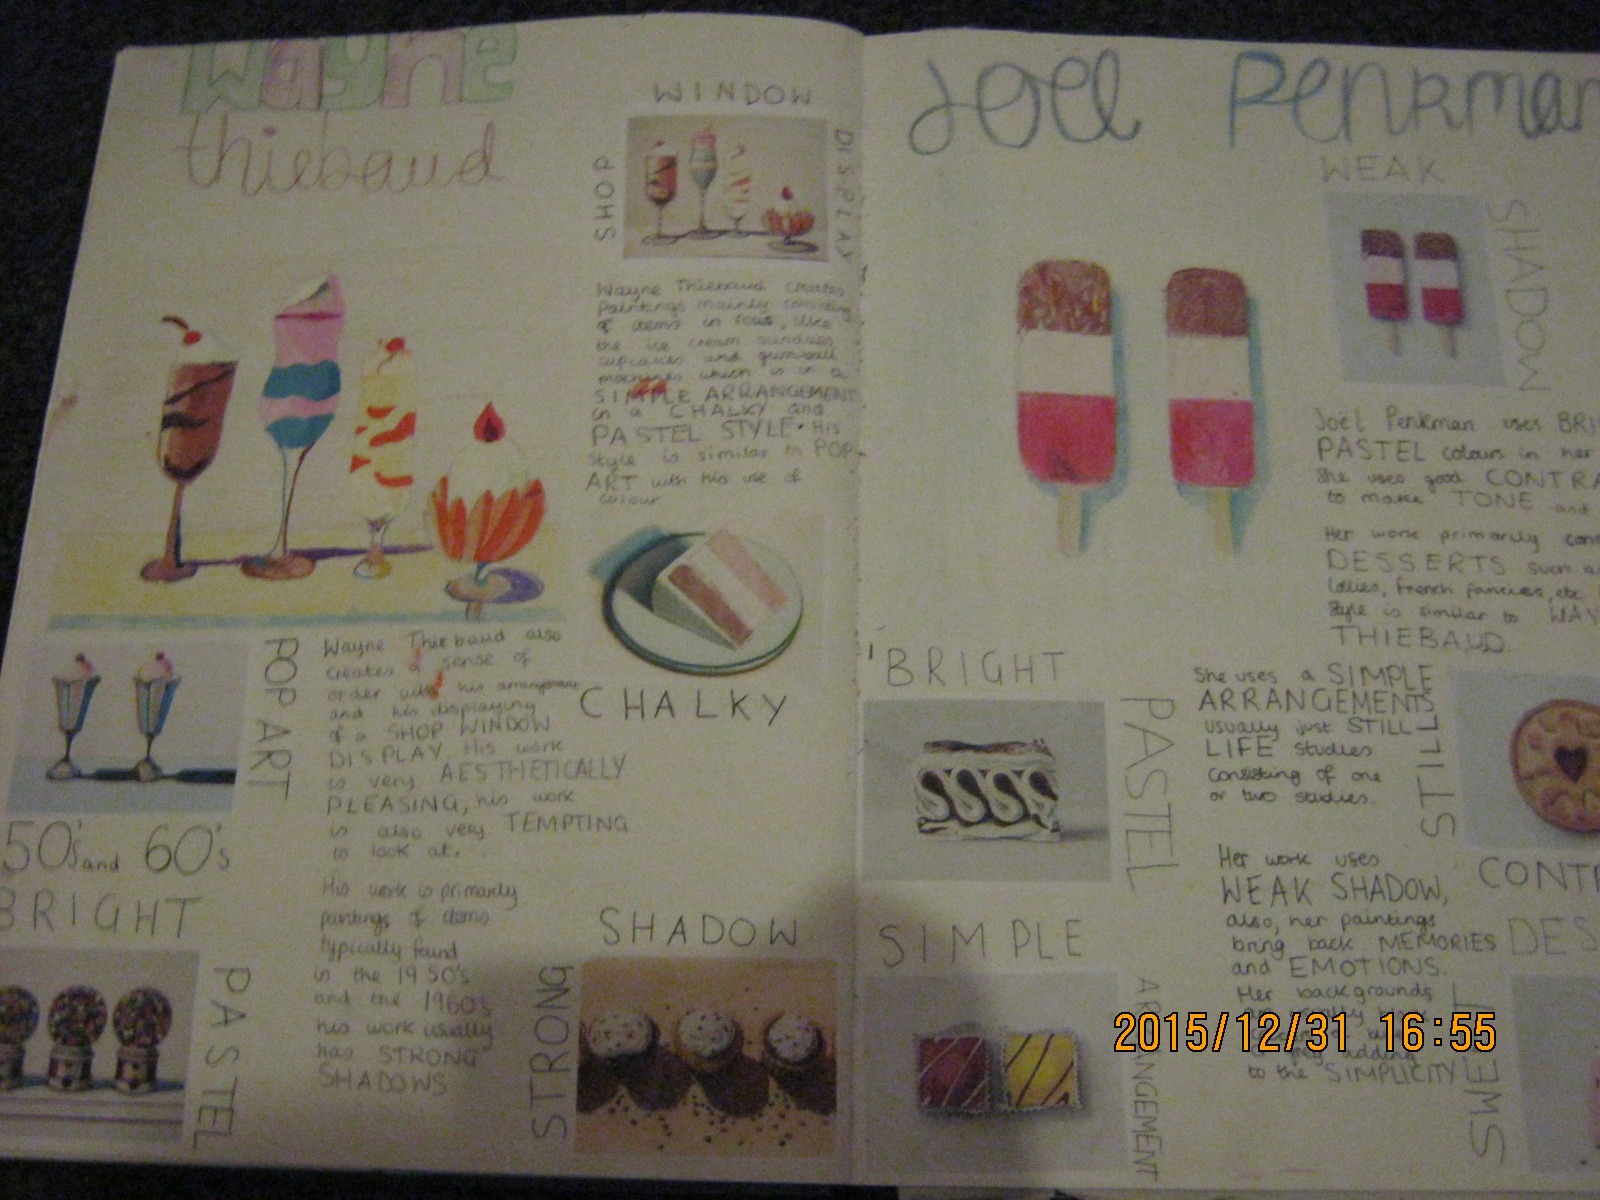 Wayne
thiebaud
WINDOW
SHOP
DISPLAY
Wayne Thiebaud creates
Paintings mainly consisting
of items in rows, like
the ice cream sundaes
cupcakes and gumball
machines which is in a
SIMPLE ARRANGEMENT
in a CHALKY and
PASTEL STYLE. His
style is similar to POP
ART with his use of
colour
CHALKY
POP ART
Wayne Thiebaud also
creates a sense of
order with his arrangement
and his displaying
of a SHOP WINDOW
DISPLAY. His work
is very AESTHETICALLY
PLEASING, his work
is also very TEMPTING
to look at.
His work is primarily
paintings of items
typically found
in the 1950's
and the 1960's
his work usually
has STRONG
SHADOWS
50's and 60's
BRIGHT
PASTEL
STRONG
SHADOW
Joël Penkman
WEAK
SHADOW
Joël Penkman uses
PASTEL colours in her
She uses good
to make TONE and
Her work primarily
DESSERTS such
lollies, french fancies, etc.
Style is similar to
THIEBAUD.
'BRIGHT
PASTEL
She uses a SIMPLE
ARRANGEMENTS
usually just STILL
LIFE studies
consisting of one
or two studies.
STILL
Her work uses
WEAK SHADOW,
also, her paintings
bring back MEMORIES
and EMOTIONS.
Her backgrounds
adding
to the SIMPLICITY
SIMPLE
ARRANGEMENT
2015/12/31 16:55